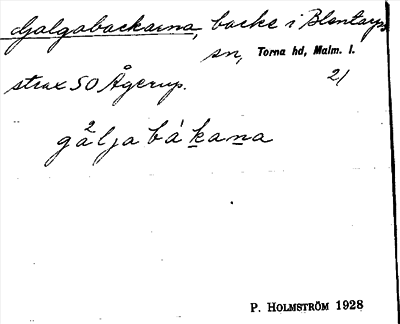 Galgabackarna, backe i Blentarps
sn, Torna hd, Malm. l.
strax SO Ågerup. 2/
gà2ljabákana
P. HOLMSTRÖM 1928